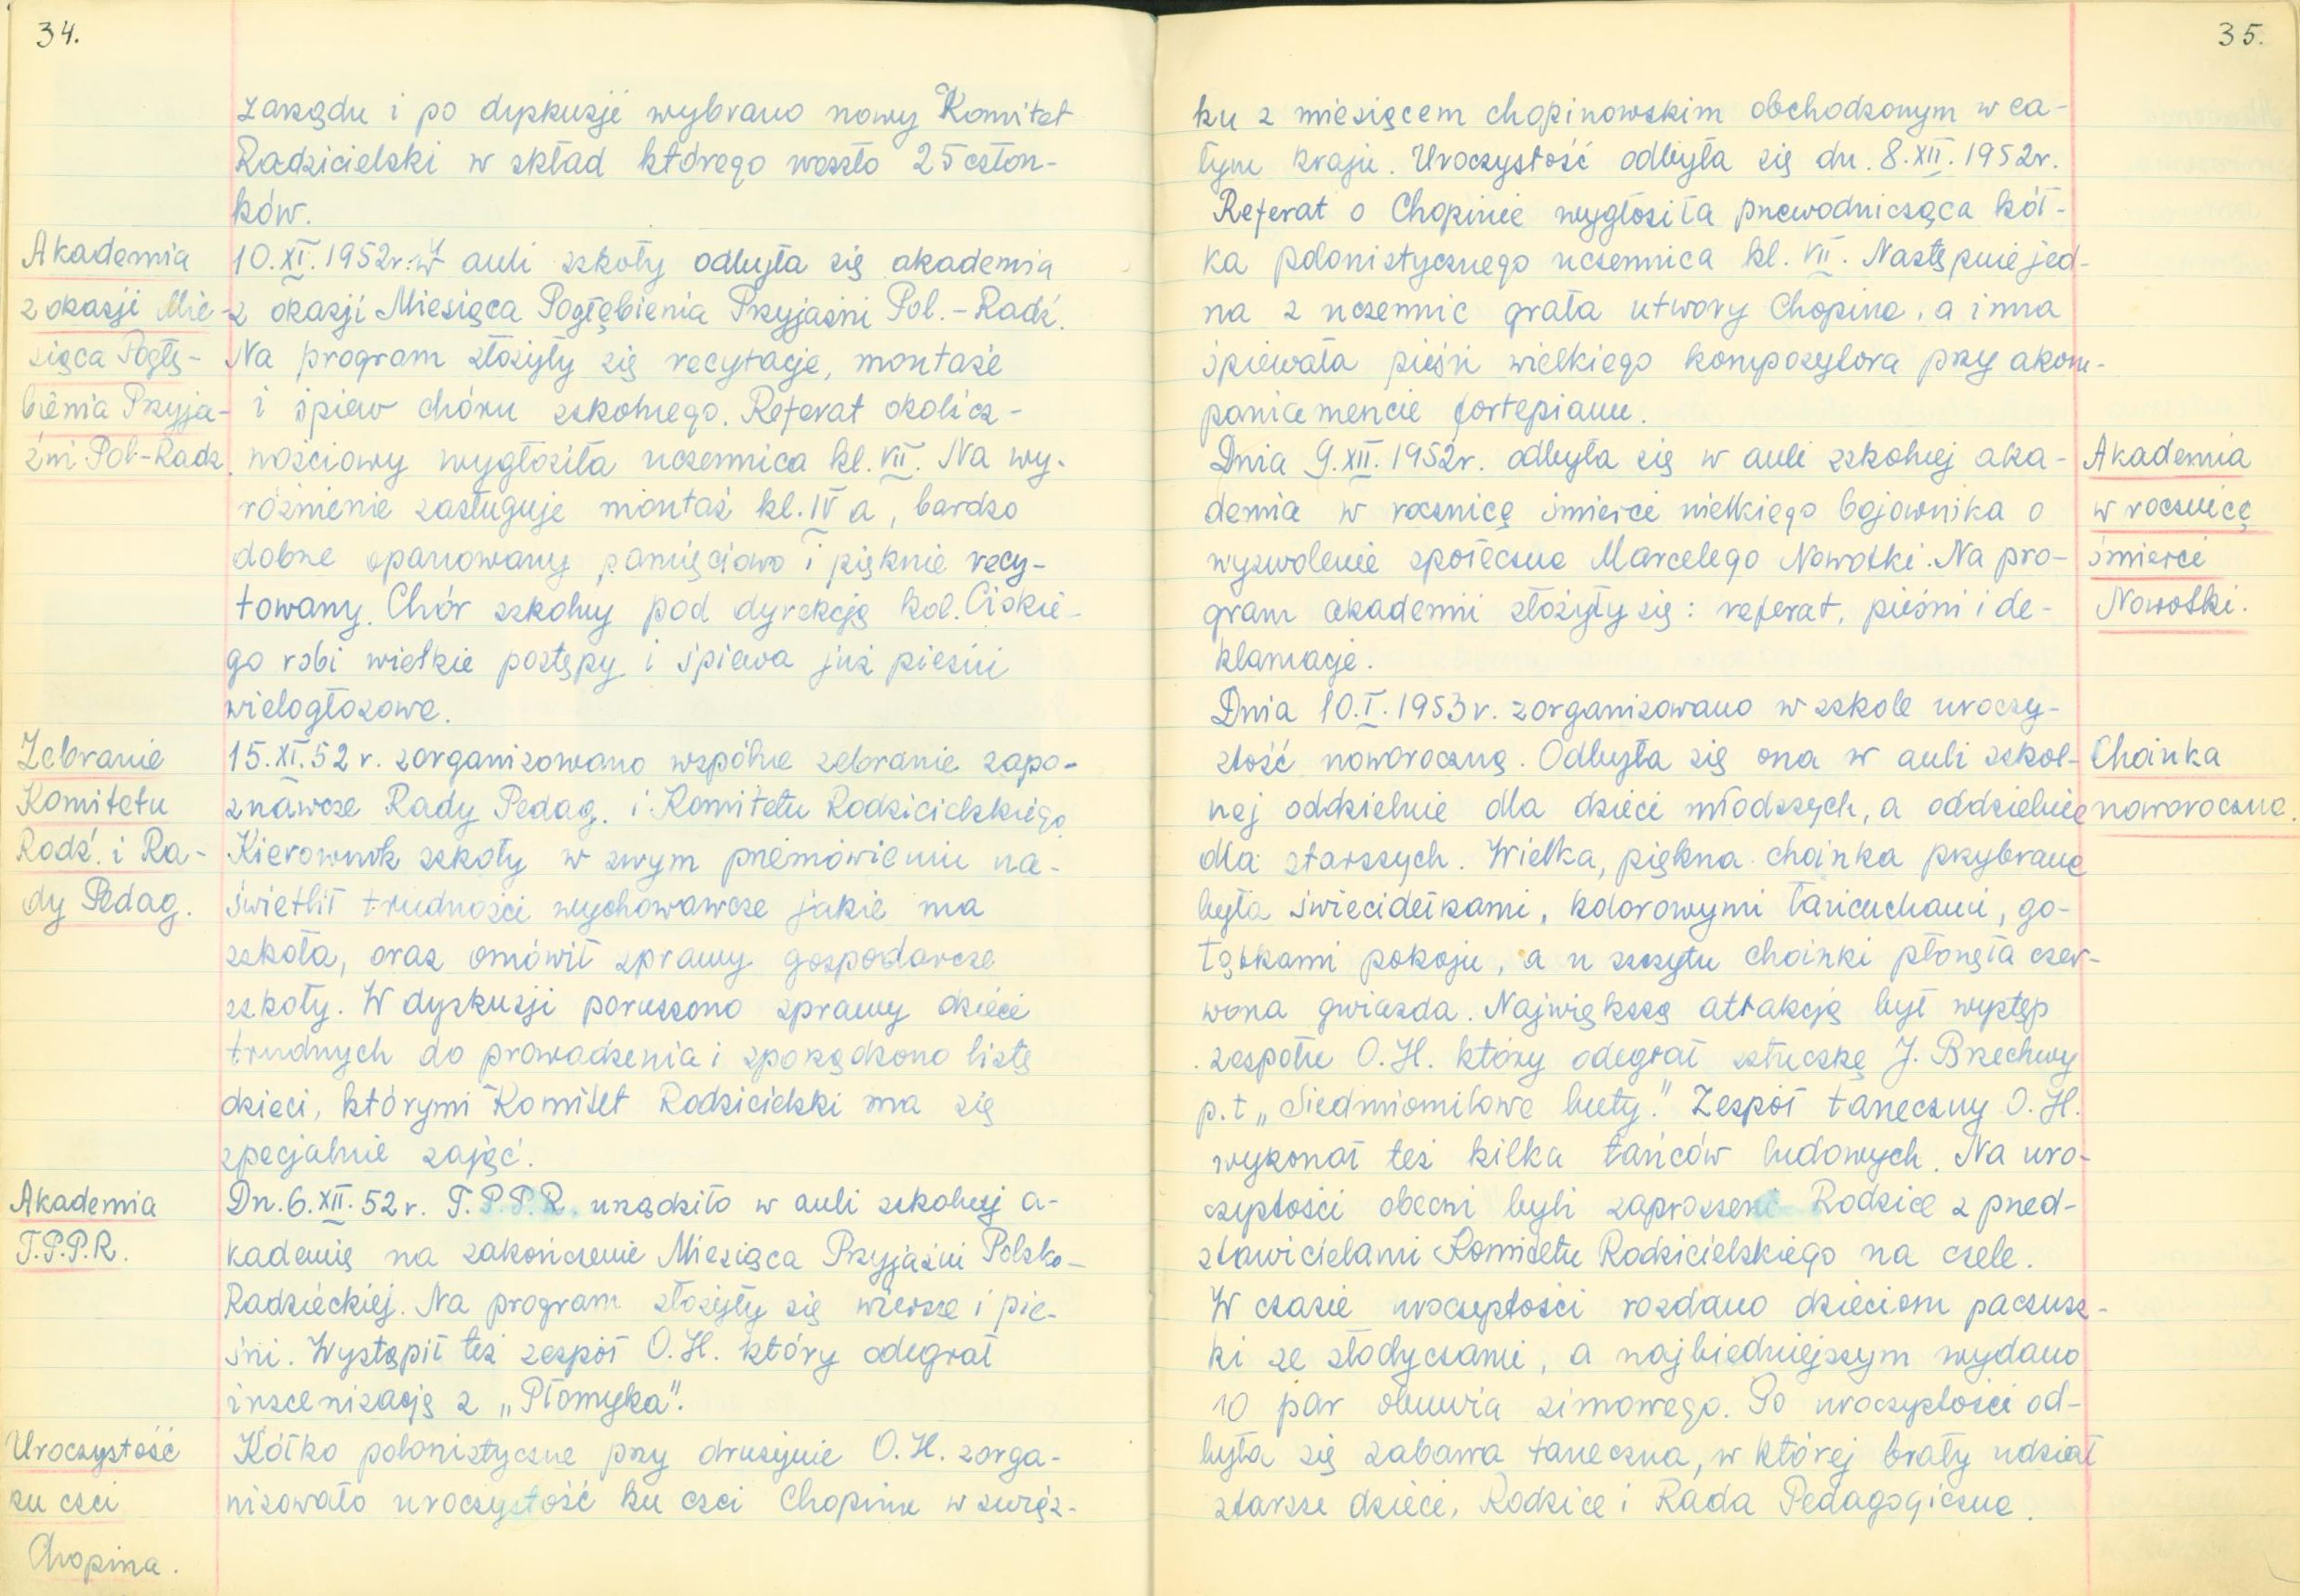 34.
zarządu i po dyskusji wybrano nowy Komitet
Rodzicielski w skład którego weszło 25 człon-
ków.
Akademia
z okazji Mie-
siąca Pogłę-
bienia Przyja-
źni Pol-Radz.
10.XI.1952r. w auli szkoły odbyła się akademia
z okazji Miesiąca Pogłębienia Przyjaźni Pol.-Radź.
Na program złożyły się recytacje, montaże
i śpiew chóru szkolnego. Referat okolicz-
nościowy wygłosiła uczennica kl. VII. Na wy-
różnienie zasługuje montaż kl. IV a, bardzo
dobrze opanowany pamięciowo i pięknie recy-
towany. Chór szkolny pod dyrekcją kol. Ciskie-
go robi wielkie postępy i śpiewa już pieśni
wielogłosowe.
Zebranie
Komitetu
Rodź. i Ra-
dy Pedag.
15.XI.52 r. zorganizowano wspólne zebranie zapo-
znawcze Rady Pedag. i Komitetu Rodzicielskiego
Kierownik szkoły w swym przemówieniu na-
świetlił trudności wychowawcze jakie ma
szkoła, oraz omówił sprawy gospodarcze
szkoły. W dyskusji poruszono sprawy dzieci
trudnych do prowadzenia i sporządzono listę
dzieci, którymi Komitet Rodzicielski ma się
specjalnie zająć.
Akademia
T.P.P.R.
Dn. 6.XII.52 r. T.P.P.R. urządziło w auli szkolnej a-
kademię na zakończenie Miesiąca Przyjaźni Polsko-
Radzieckiej. Na program złożyły się wiersze i pie-
śni. Wystąpił też zespół O.H. który odegrał
inscenizację z „Płomyka".
Uroczystość
ku czci
Chopina.
Kółko polonistyczne przy drużynie O.H. zorga-
nizowało uroczystość ku czci Chopina w związ-
35.
ku z miesiącem chopinowskim obchodzonym w ca-
łym kraju. Uroczystość odbyła się dn. 8.XII.1952r.
Referat o Chopinie wygłosiła przewodnicząca kół-
ka polonistycznego uczennica kl. VII. Następnie jed-
na z uczennic grała utwory Chopina, a inna
śpiewała pieśni wielkiego kompozytora przy akom-
paniamencie fortepianu.
Akademia
w rocznicę
śmierci
Nowotki.
Dnia 9.XII.1952r. odbyła się w auli szkolnej aka-
demia w rocznicę śmierci wielkiego bojownika o
wyzwolenie społeczne Marcelego Nowotki. Na pro-
gram akademii złożyły się: referat, pieśni i de-
klamacje.
Dnia 10.I.1953r. zorganizowano w szkole uroczy-
stość noworoczną. Odbyła się ona w auli szkol-
Choinka
noworoczna.
nej oddzielnie dla dzieci młodszych, a oddzielnie
dla starszych. Wielka, piękna choinka przybrana
była świecidełkami, kolorowymi łańcuchami, go-
łąbkami pokoju, a u szczytu choinki płonęła czer-
wona gwiazda. Największą atrakcją był występ
zespołu O.H. który odegrał sztuczkę J. Brzechwy
p.t „Siedmiomilowe buty." Zespół taneczny O.H.
wykonał też kilka tańców ludowych. Na uro-
czystości obecni byli zaproszeni Rodzice z przed-
stawicielami Komitetu Rodzicielskiego na czele.
W czasie uroczystości rozdano dzieciom paczusz-
ki ze słodyczami, a najbiedniejszym wydano
10 par obuwia zimowego. Po uroczystości od-
była się zabawa taneczna, w której brały udział
starsze dzieci, Rodzice i Rada Pedagogiczna.